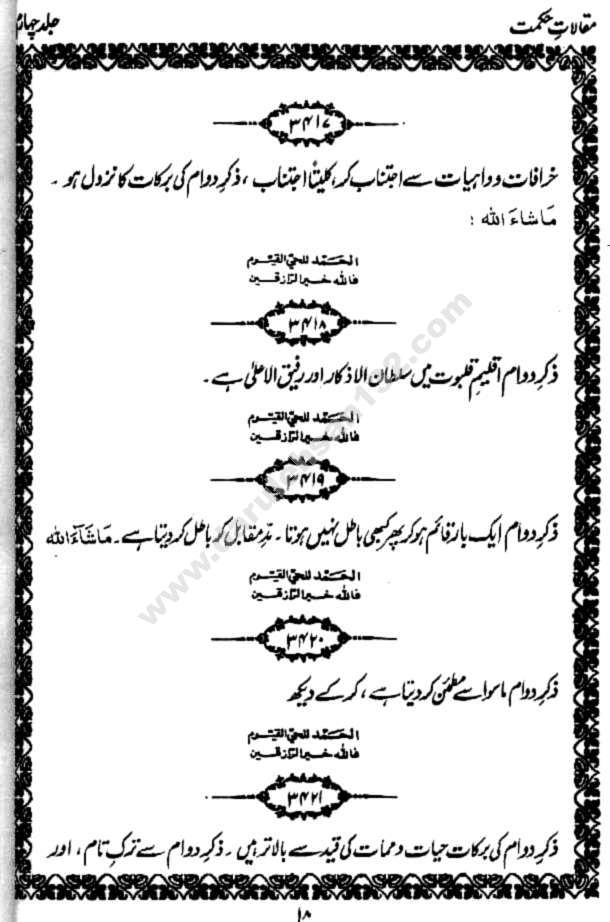 مقالاتِ حکمت
جلد چہارم
۳۴۱۷
خرافات و واہیات سے اجتناب کر، کلیتاً اجتناب ، ذکرِ دوام کی برکات کا نزول ہو ۔
مَاشَاءَ اللہ :
الحَمد للحیّ القیّوم
فاللہ خیر الرازقین
۳۴۱۸
ذکرِ دوام اقلیمِ قلبوت میں سلطان الاذکار اور رفیق الاعلیٰ ہے ۔
الحَمد للحیّ القیّوم
فاللہ خیر الرازقین
۳۴۱۹
ذکرِ دوام ایک بار قائم ہو کر پھر کبھی باطل نہیں ہوتا ۔ مدِّ مقابل کو باطل کر دیتا ہے ۔ مَاشَآءَ اللہ
الحَمد للحیّ القیّوم
فاللہ خیر الرازقین
۳۴۲۰
ذکرِ دوام ماسوا سے مطمئن کر دیتا ہے ، کر کے دیکھ
الحَمد للحیّ القیّوم
فاللہ خیر الرازقین
۳۴۲۱
ذکرِ دوام کی برکات حیات و ممات کی قید سے بالاتر ہیں ۔ ذکرِ دوام سے ترکِ تام ، اور
۱۸